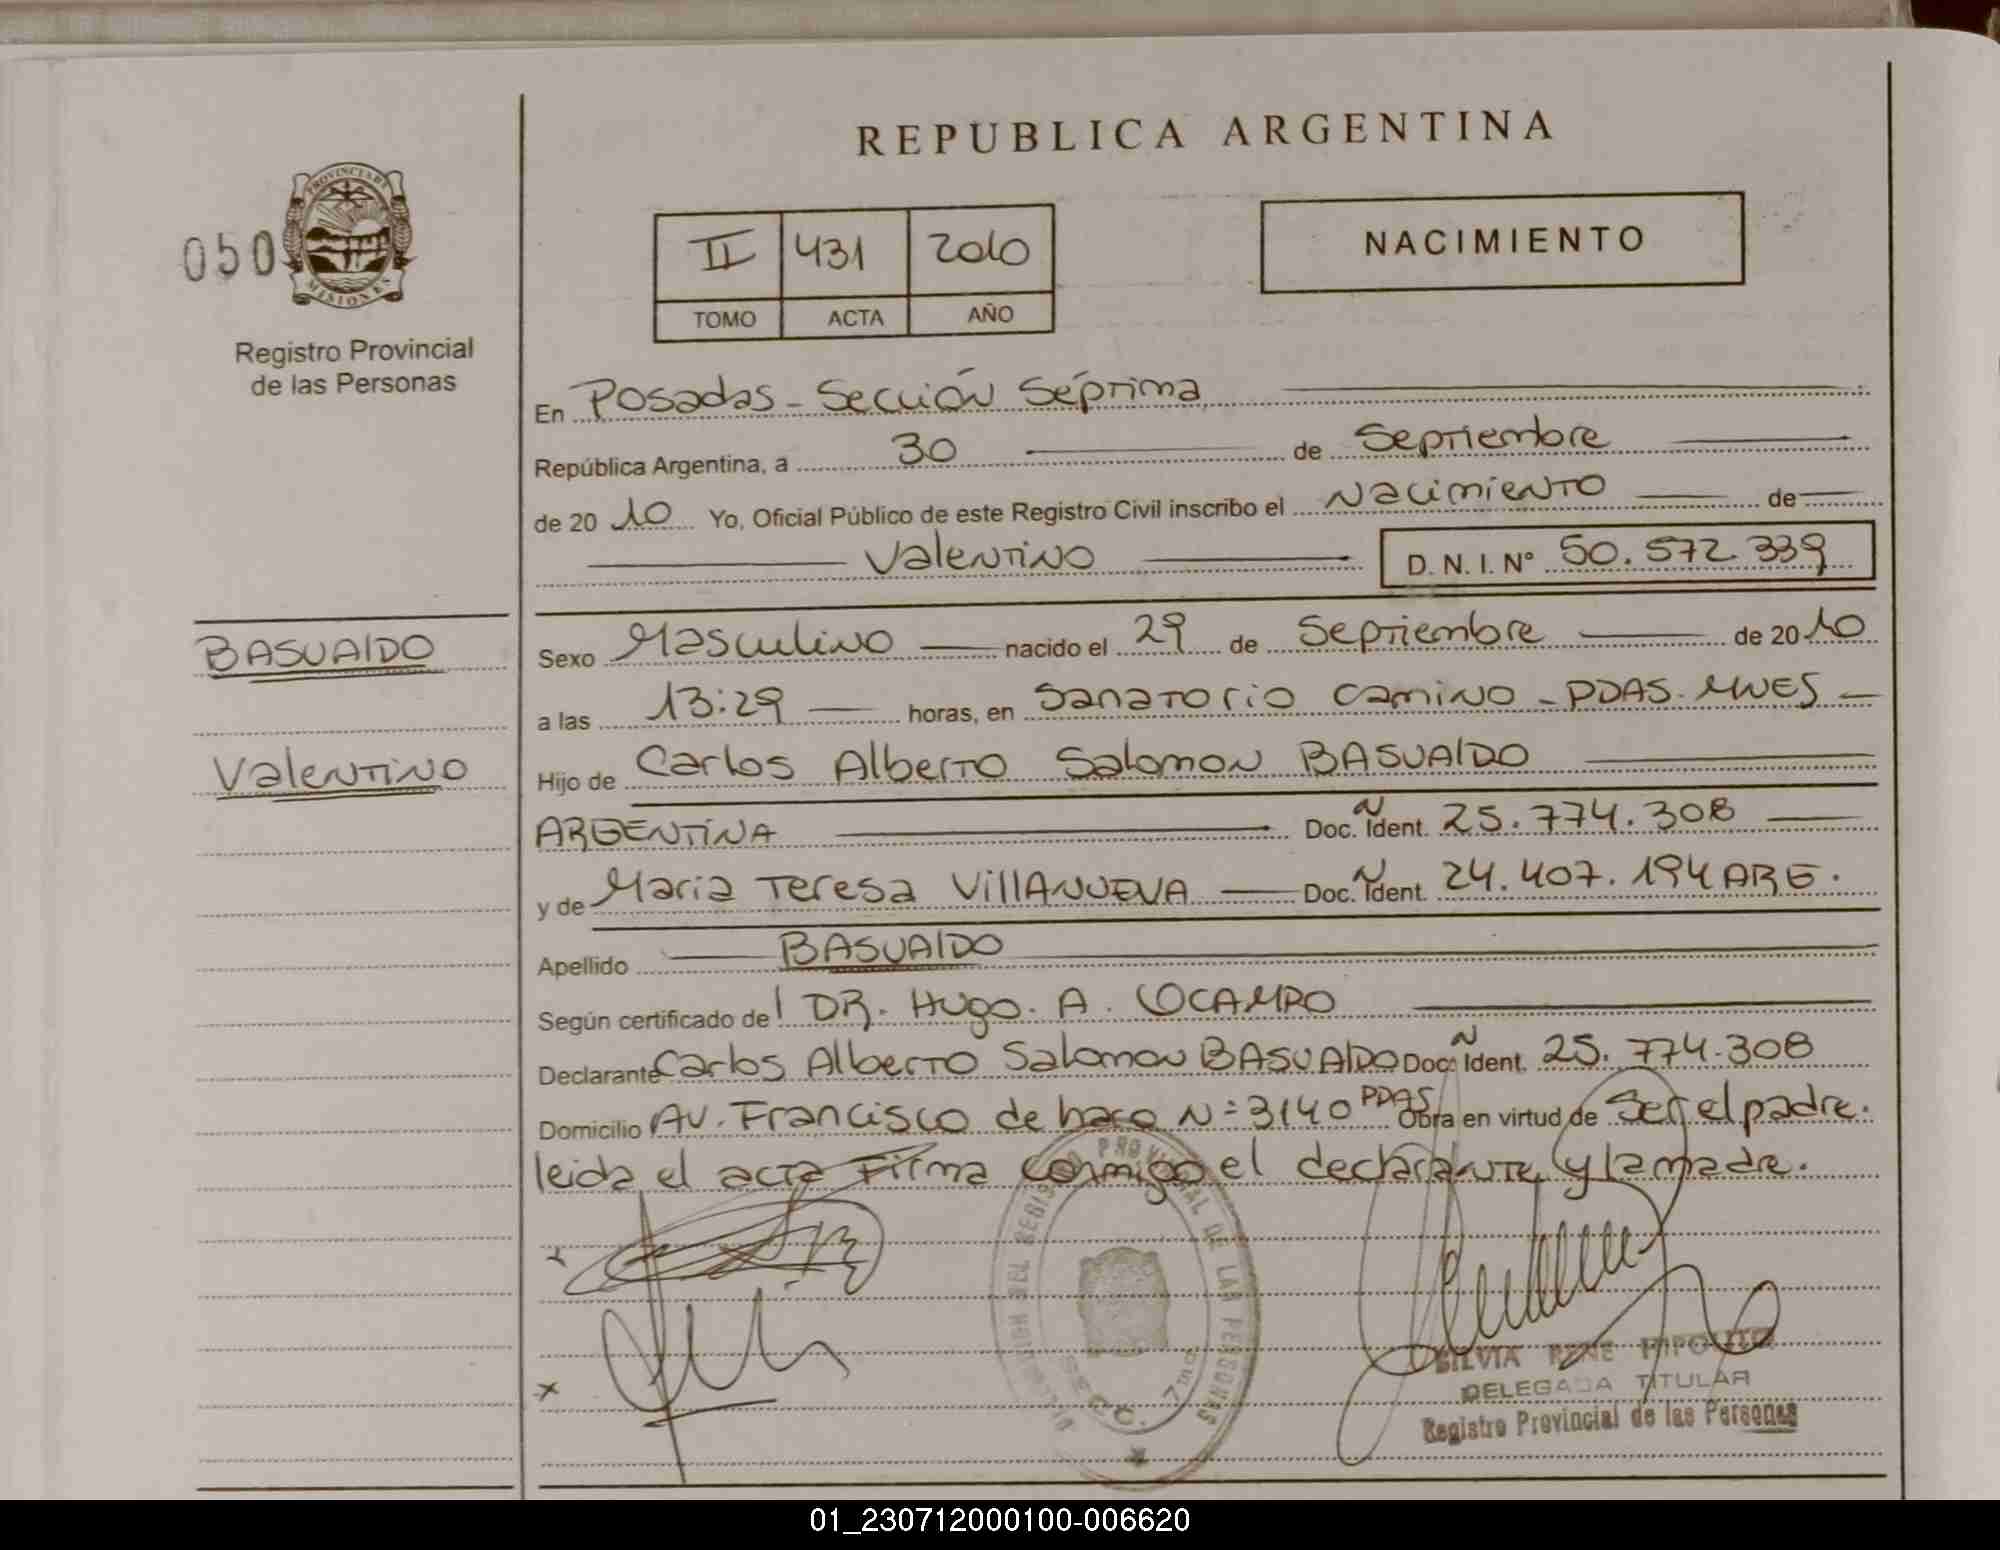 REPUBLICA ARGENTINA
050
PROVINCIA DE MISIONES
II 431 2010
TOMO ACTA AÑO
NACIMIENTO
Registro Provincial
de las Personas
En Posadas - Sección Séptima
República Argentina, a 30 de Septiembre
de 2010 Yo, Oficial Público de este Registro Civil inscribo el Nacimiento de
Valentino D. N. I. Nº 50.572.339
BASUALDO
Valentino
Sexo Masculino nacido el 29 de Septiembre de 2010
a las 13:29 horas, en Sanatorio Camino - PDAS. MNES
Hijo de Carlos Alberto Salomon BASUALDO
ARGENTINA Doc. Ñ Ident. 25.774.308
y de Maria Teresa VILLANUEVA Doc. Ñ Ident. 24.407.194 ARG.
Apellido BASUALDO
Según certificado del DR. Hugo. A. OCAMPO
Declarante Carlos Alberto Salomon BASUALDO Doc. Ñ Ident. 25.774.308
Domicilio Av. Francisco de haro N= 3140 PDAS Obra en virtud de Ser el padre.
leida el acta Firma conmigo el declarante y la madre.
DEL REGISTRO PROVINCIAL DE LAS PERSONAS
SECC. 7ma
SILVIA RENE RIPOLL
DELEGADA TITULAR
Registro Provincial de las Personas
01_230712000100-006620